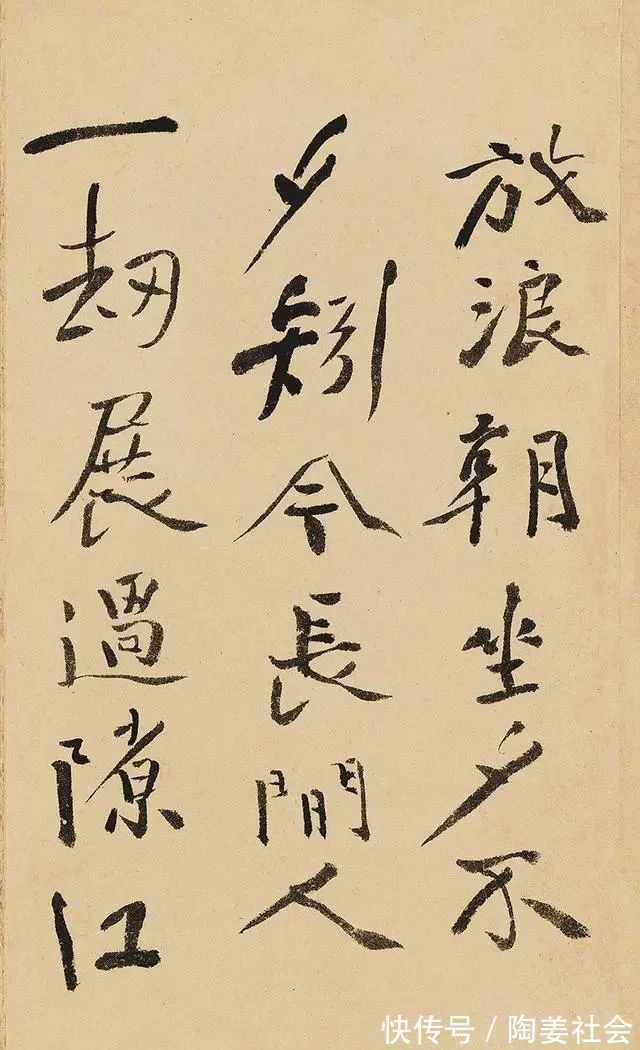 放浪朝坐夕不
夕矧今長閒人
一刼展過隙江
快传号 / 陶姜社会